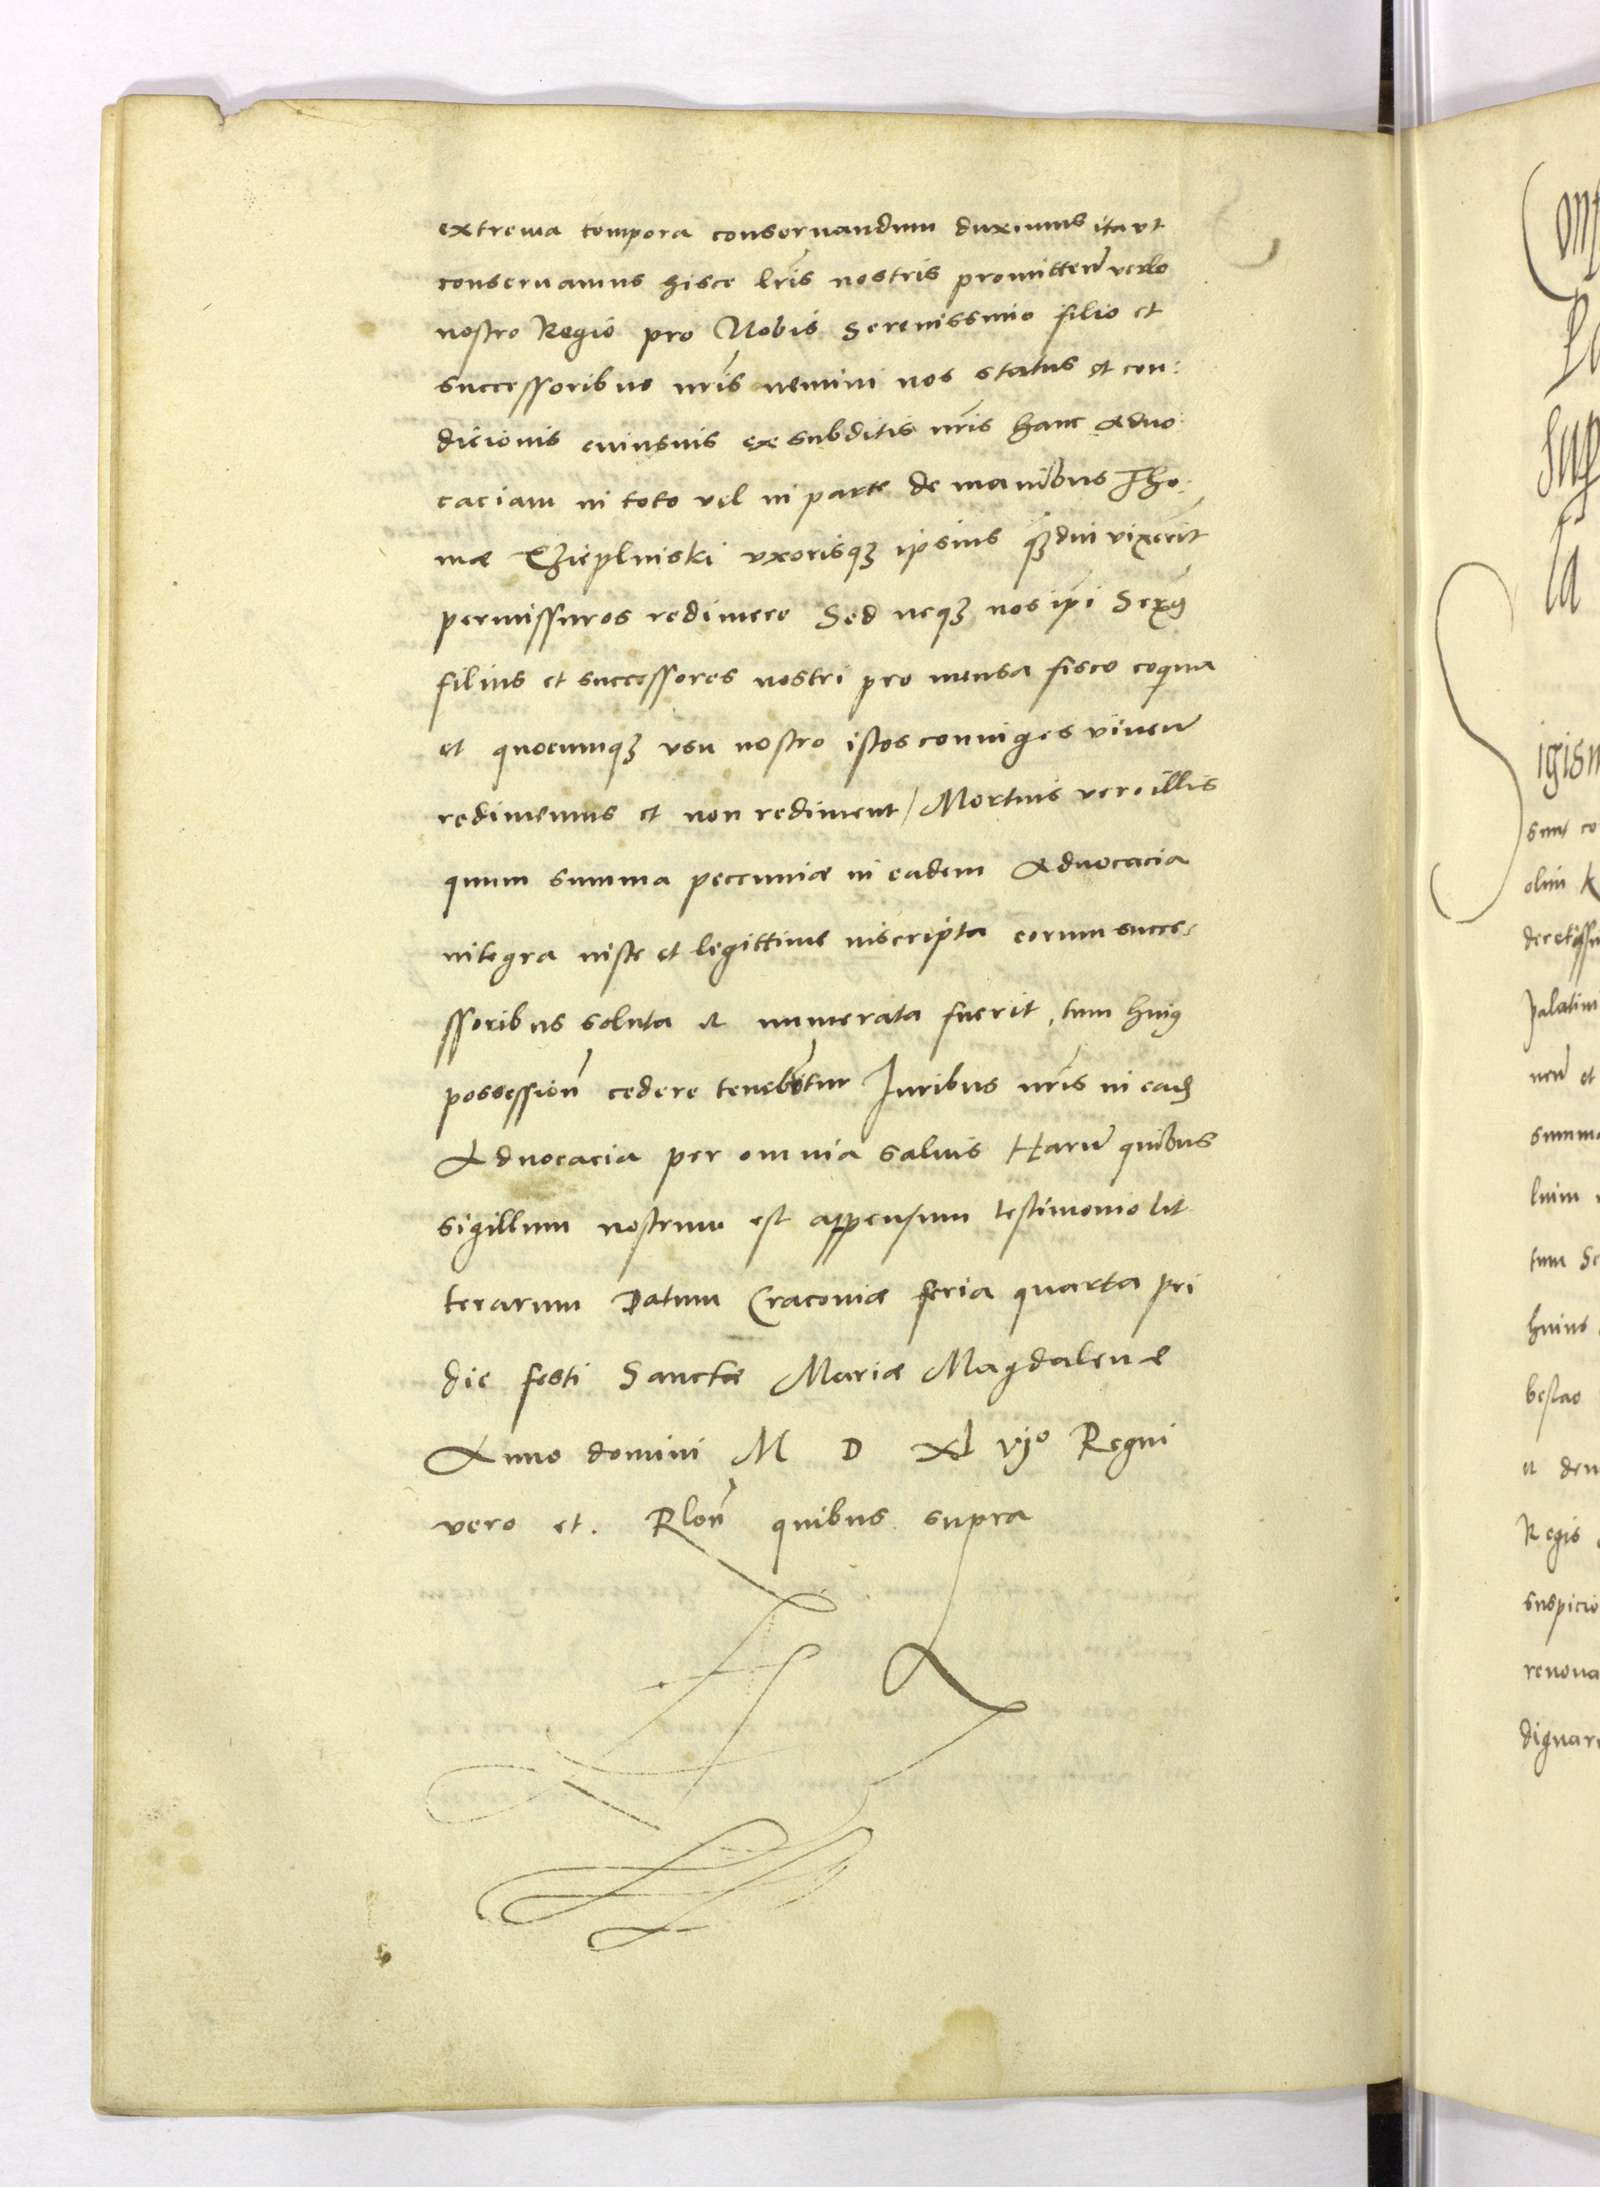 extrema tempora conseruandum duximus ita vt
conseruamus hisce lris nostris promitten verbo
nostro Regio pro Nobis Serenissimo filio et
successoribus nris nemini nos status et con:
dicionis cuiusuis ex subditis nris hanc aduo
caciam in toto vel in parte de manibus Tho:
mæ Czieplinski vxorisqꝫ ipsius qdiu vixerit
permissuros redimere Sed neqꝫ nos ipi
filius et successores nostri pro mensa fisco coquina
et quocunqꝫ vsu nostro istos coniuges viuen
redimemus et non rediment / Mortuis vero illis
quum summa peccuniæ in eadem Aduocacia
integra iuste et legittime inscripta eorum succe-
ssoribus soluta et numerata fuerit, tum huiꝰ
possession cedere tenebntur Iuribus nris in ead
Aduocacia per omnia saluis Harum quibus
sigillum nostrum est appensum testimonio lit
terarum Datum Cracouiæ feria quarta pri
die festi Sanctæ Mariæ Magdalenæ
Anno domini M D xl vjo Regni
vero et. quibus supra
Conf
Sup
la
igism
sunt co
olim K
Palatini
nen et
summa
tum Se
huius
et den
Regis
suspicio
renoua
dignare